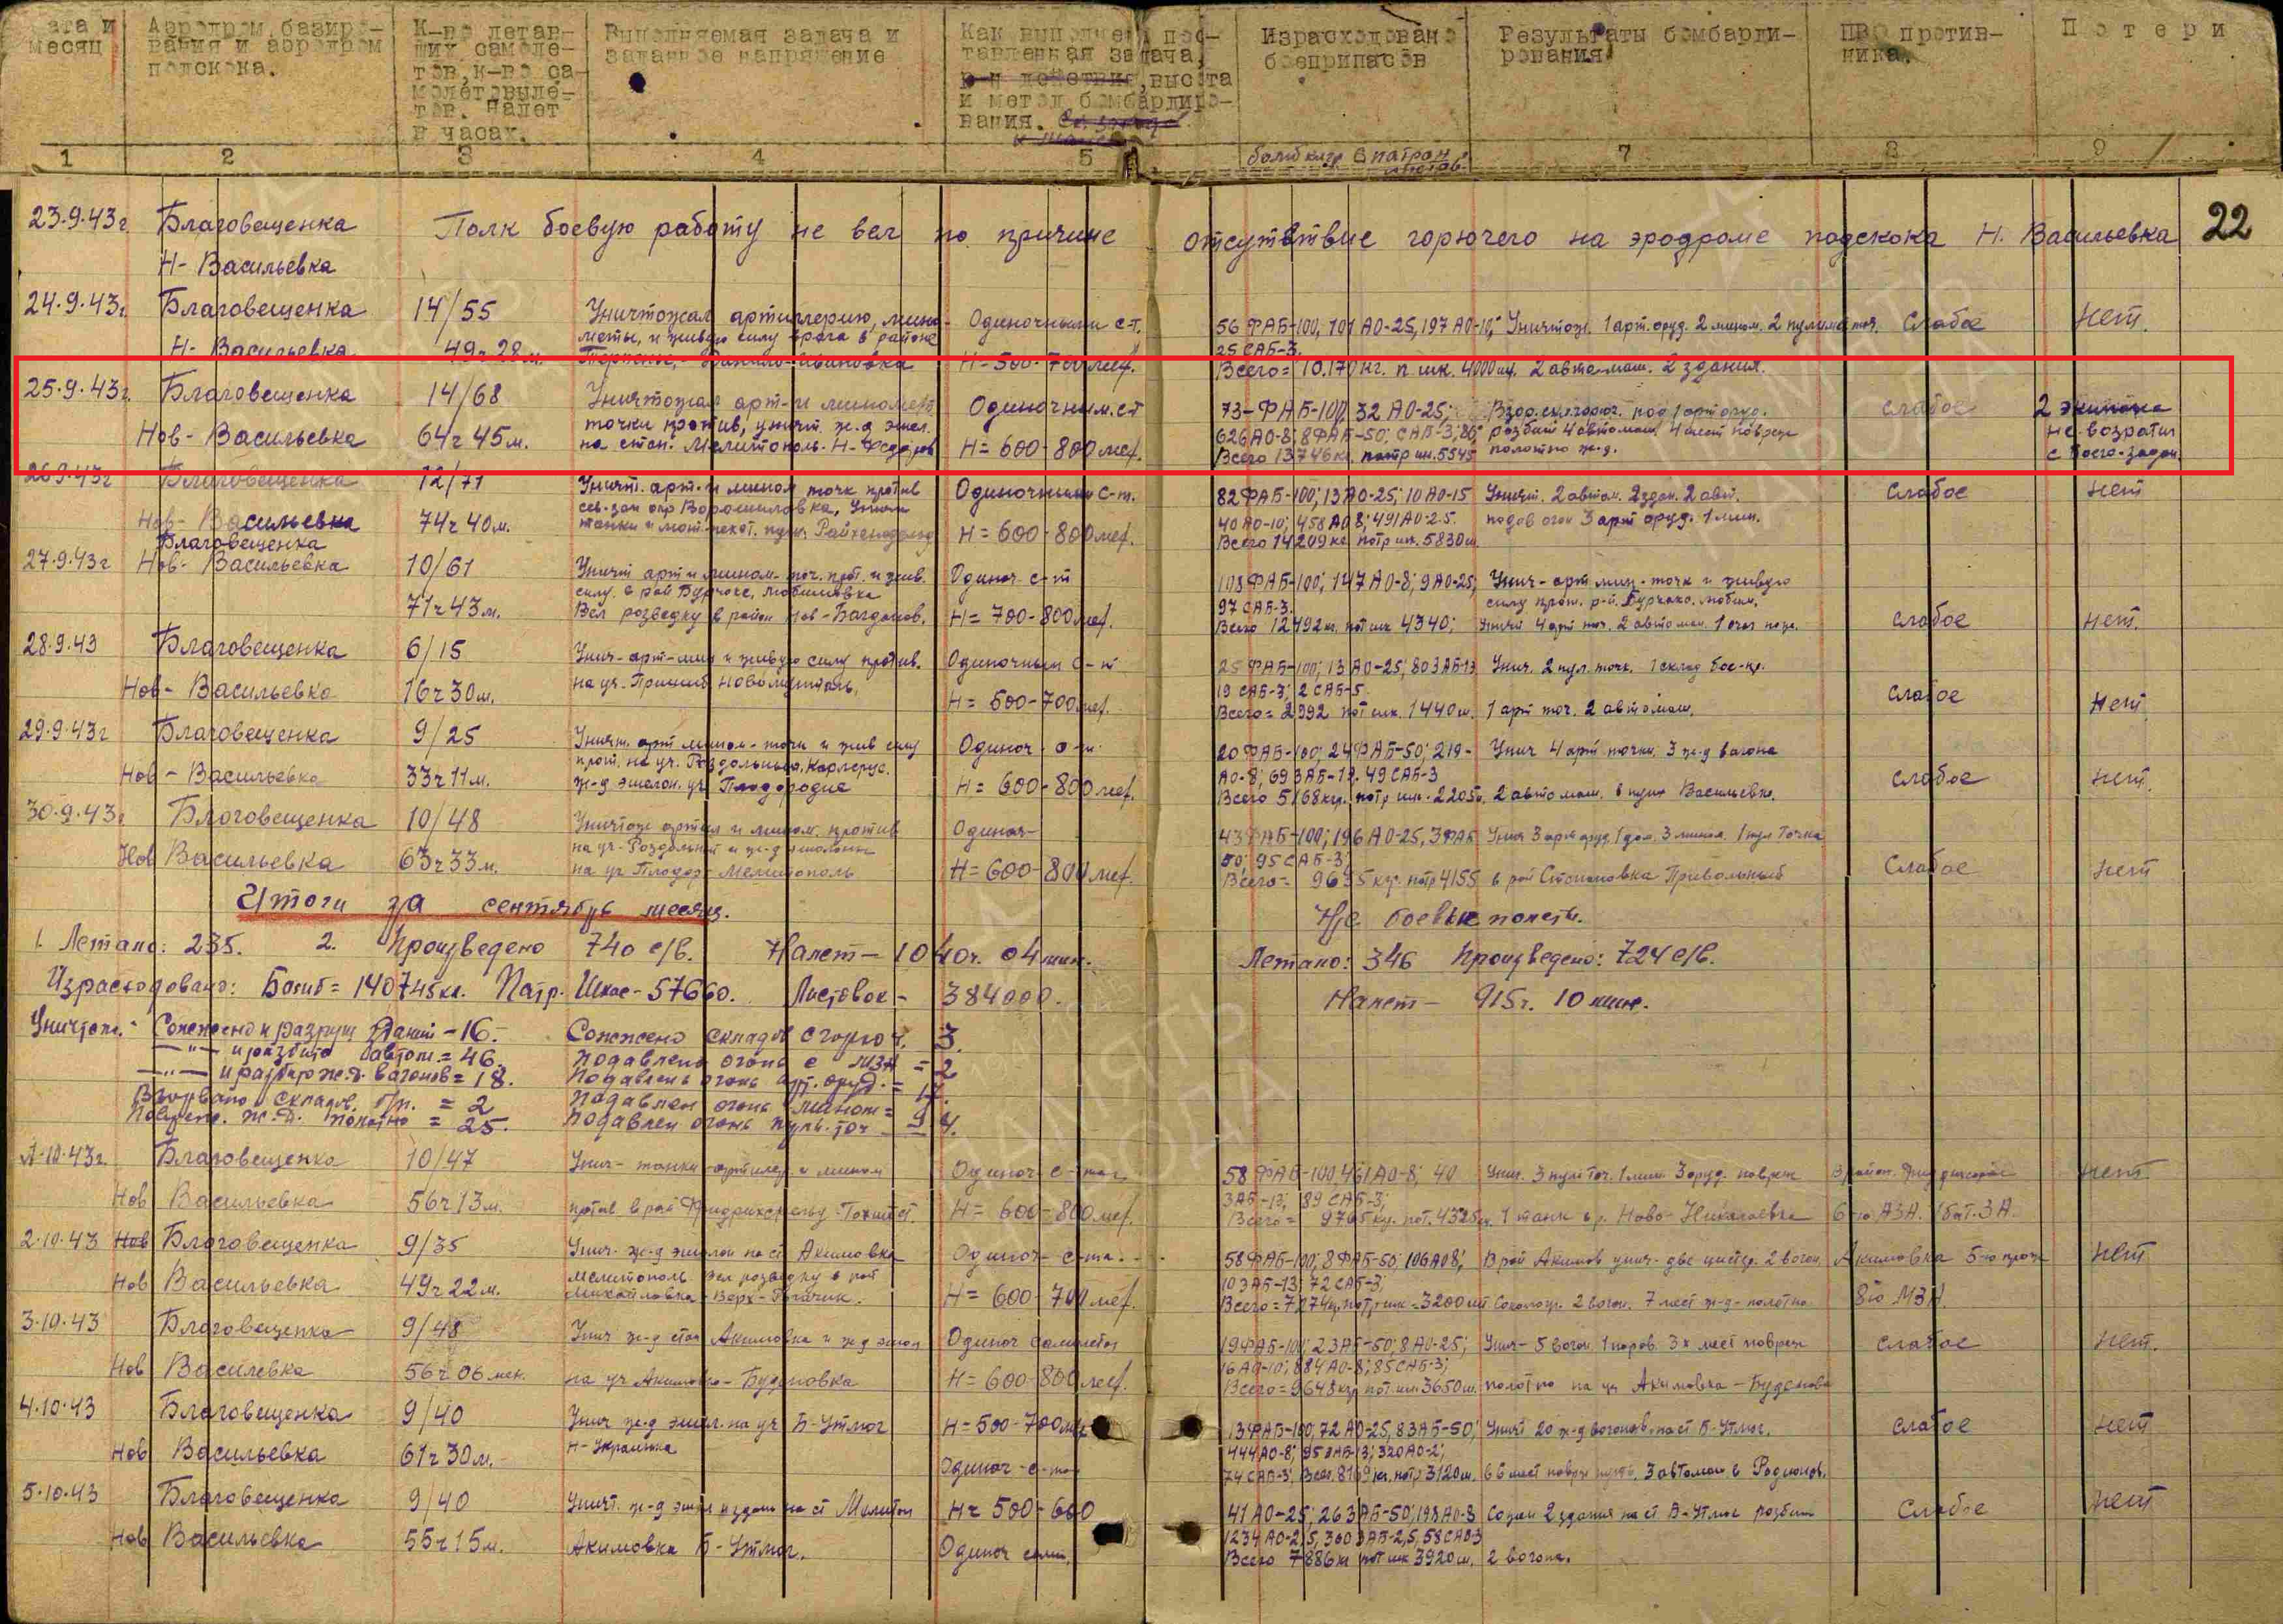 ата и месяц
Аэродром базиро-
вания и аэродром
подскока.
К-во летав-
ших самоле-
тов, к-во са-
молетовыле-
тов. Налет
в часах.
Выполняемая задача и
заданное напряжение
Как выполнена пос-
тавленная задача,
р-н действия, высота
и метод бомбардиро-
вания.
Израсходовано
боеприпасов
Результаты бомбарди-
рования
ПВО против-
ника.
Потери
1 2 3 4 5 6 7 8 9
бомб клгр. патрон
листов.
22
23.9.43г. Благовещенка Полк боевую работу не вел по причине отсутствие горючего на эродроме подскока Н. Васильевка
Н-Васильевка
24.9.43г. Благовещенка 14/55 Уничтожал артиллерию, мино- Одиночными с-т. 56 ФАБ-100, 101 АО-25, 197 АО-10, Уничтож. 1 арт. оруд. 2 мином. 2 пулимет точ. Слабое Нет.
Н-Васильевка 49ч 28м. меты, и живую силу врага в районе
25 САБ-3.
Н-500-700 мет. Всего = 10.170 кг. п шк. 4000 шт. 2 автомаш. 2 здания.
25.9.43г. Благовещенка 14/68 Уничтожал арт- и миномет. Одиночным. с-т 73-ФАБ-100, 32 АО-25; под 1 арт оруд. слабое 2 экипажа
Нов-Васильевка 64ч 45м. точки против, уничт. ж.д эшел. 626 АО-8; 8 ФАБ-50; САБ-3; 86; розбит 4 автомаш. 4 мест повреж не возратил
на стан. Мелитополь. Н-Федоров Н=600-800 мет. Всего 13746 кг. патр шк. 5545 полотно ж-д. с боево-задан.
26.9.43г Благовещенка 12/71 Уничт. арт- и мином точк против Одиночными с-т. 82 ФАБ-100; 13 АО-25; 10 АО-15 Уничт. 2 автом. 2 здан. 2 авт. слабое нет
Нов-Васильевка 74ч 40м. сев-зап окр Ворошиловка, 40 АО-10; 458 АО 8; 491 АО-2.5. подав огон 3 арт оруд. 1 мин.
Н=600-800 мет. Всего 14209 кг патр шк. 5830 ш.
Благовещенка
27.9.43г Нов-Васильевка 10/61 Уничт арт и мином-точ. прот. и жив. Одиноч с-т 103 ФАБ-100; 147 АО-8; 9 АО-25; Унич-арт мин-точк и живую
71ч 43м. силу в рай
97 САБ-3. силу прот. р-й.
Вел розведку в район Нов-Богданов. Н=700-800 мет. Всего 12492 кг, пат шк 4340; слабое нет.
28.9.43 Благовещенка 6/15 Унич-арт-мин и живую силу против. Одиночным с-т 25 ФАБ-100; 13 АО-25; 80 ЗАБ-13 Унич. 2 пул. точк. 1 склад бое-пр.
Нов-Васильевка 16ч 30м. на уч-Пришиб Новомунталь. 19 САБ-3; 2 САБ-5 слабое Нет
Н=500-700 мет. Всего = 2992 пат шк. 1440 ш. 1 арт точ. 2 автомаш.
29.9.43г Благовещенка 9/25 Уничт. арт мином-точк и жив силу Одиноч с-т. 20 ФАБ-100; 24 ФАБ-50; 219- Унич 4 арт точки. 3 ж-д вагона
Нов-Васильевка 33ч 11м. прот. на уч. Роздольный. Карлерус. АО-8; 69 ЗАБ-13. 49 САБ-3 слабое нет.
ж-д эшелон. уч Плодородие Н=600-800 мет. Всего 5168 кгр. патр шк. 2205 2 автомаш. в пунк Васильевк.
30.9.43г Благовещенка 10/48 Уничтож артил и мином. против Одиноч- 43 ФАБ-100; 196 АО-25, 3 ФАБ Унич 3 арт оруд. 1 дом. 3 мином. 1 пул Точка
Нов Васильевка 63ч 33м. на уч-Роздольный и ж-д эшелоны 50; 95 САБ-3; Слабое нет
на уч Плодор-Мелитополь Н=600-800 мет. Всего= 9635 кгр. патр 4155 в рай Степановка Привольный
Итоги за сентябрь месяц. Не боевые полеты.
1. Летало: 235. 2. Произведено 740 с/в. Налет-1040ч. 04 мин. Летало: 346 Произведено: 724 с/в.
Израсходовано: Бомб=140745 кг. Патр. Шкас-57660. Листовок-384000. Налет- 915ч. 10 мин.
Уничтож. Сожжено и разруш зданий-16. Сожжено складов с горюч. 3.
—"— и разбито автом.=46. Подавлено огонь с МЗА = 2
—"— и разбито ж.д. вагонов=18. Подавлень огонь арт. оруд.= 17.
Взорвано складов б/п. = 2 Подавлен огонь мином= 9
Повреж. ж.д. полотно = 25. Подавлен огонь пуль. точ = 4.
1.10.43г. Благовещенка 10/47 Унич-танки-артилер и мином Одиноч с-том 58 ФАБ-100, 461 АО-8; 40 Унич. 3 пул точ. 1 мин. 3 оруд. повреж нет
Нов Васильевка 56ч 13м. Н=600-800 мет. ЗАБ-13; 89 САБ-3;
Всего= 9765 кг. 1 танк в р. Ново-Николаевка 6-ю АЗА. 1 бат. ЗА.
2.10.43 Нов Благовещенка 9/35 Унич. ж-д эшелон на ст Акимовка Одиноч-с-та. 58 ФАБ-100; 8 ФАБ-50; 106 АО 8; В рай Акимов унич-две цистер. 2 вогон. Акимовка 5-ю прож нет
Нов Васильевка 49ч 22м. Мелитополь вел розведку в рай 10 ЗАБ-13; 72 САБ-3;
Михайловка-Верх- Н=600-700 мет. 2 вогон. 7 мест ж-д-полотно 8-ю МЗА
3.10.43 Благовещенка 9/48 Унич ж-д стан Акимовка и ж-д эшел Одиноч самолетом 19 ФАБ-100; 23 АБ-50; 8 АО-25; Унич-5 вогон. 1 поров. 3х мест повреж слабое нет.
Нов Василевка 56ч 06 мин. на уч Акимовка-Будановка 16 АО-10; 884 АО-8; 85 САБ-3;
Н=600-800 мет. Всего=9648 кгр пат. шк. 3650 ш. полотно на уч Акимовка-Буденовка
4.10.43 Благовещенка 9/40 Унич ж-д эшел. на уч Б-Утлюг Н-500-700 м 13 ФАБ-100, 72 АО-25, 83 АБ-50; Уничт 20 ж-д вогонов на ст Б-Утлюг. слабое нет
Нов Васильевка 61ч 30м. Н-Украинка 444 АО-8; 95 ЗАБ-13; 320 АО-2;
Одиноч-с-та 74 САБ-3; Всег. 8169 кг. патр 3120 ш. 3 автомаш в Родионов.
5.10.43 Благовещенка 9/40 Уничт. ж-д эшел и здани на ст Мелитоп Н=500-600 41 АО-25; 263 АБ-50; 198 АО-8 Созжен 2 здания на ст Б-Утлюг розбит Слабое нет
Нов Васильевка 55ч 15м. Акимовка Б-Утлюг. Одиноч сам. 1234 АО-2,5, 360 ЗАБ-2,5, 58 САБ-3
Всего 7886 кг пат шк 3920 ш. 2 вогона.